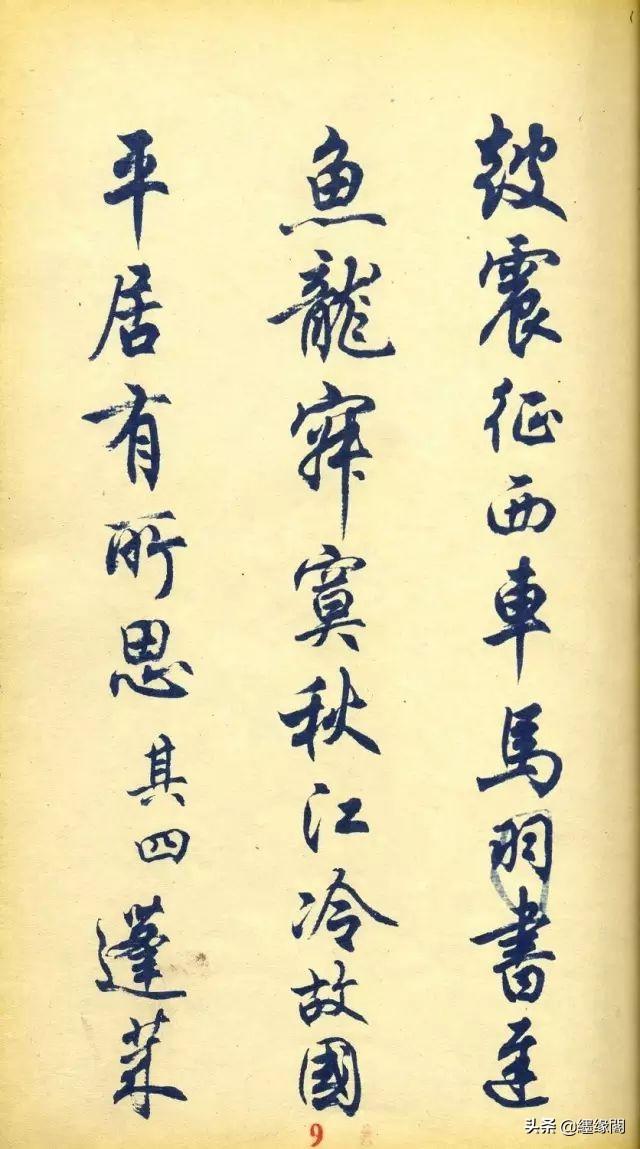 鼓震征西車馬羽書遲
魚龍寂寞秋江冷故國
平居有所思其四蓬萊
9
头条 @纆缘閣